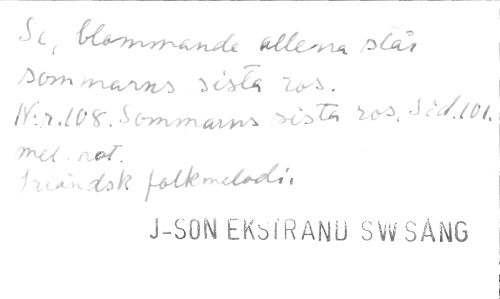 Se, blommande allena står
sommarns sista ros.
N:r.108. Sommarns sista ros. Sid.101.
mel. not.
Irländsk folkmelodi.
J-SON EKSTRAND SW SÅNG